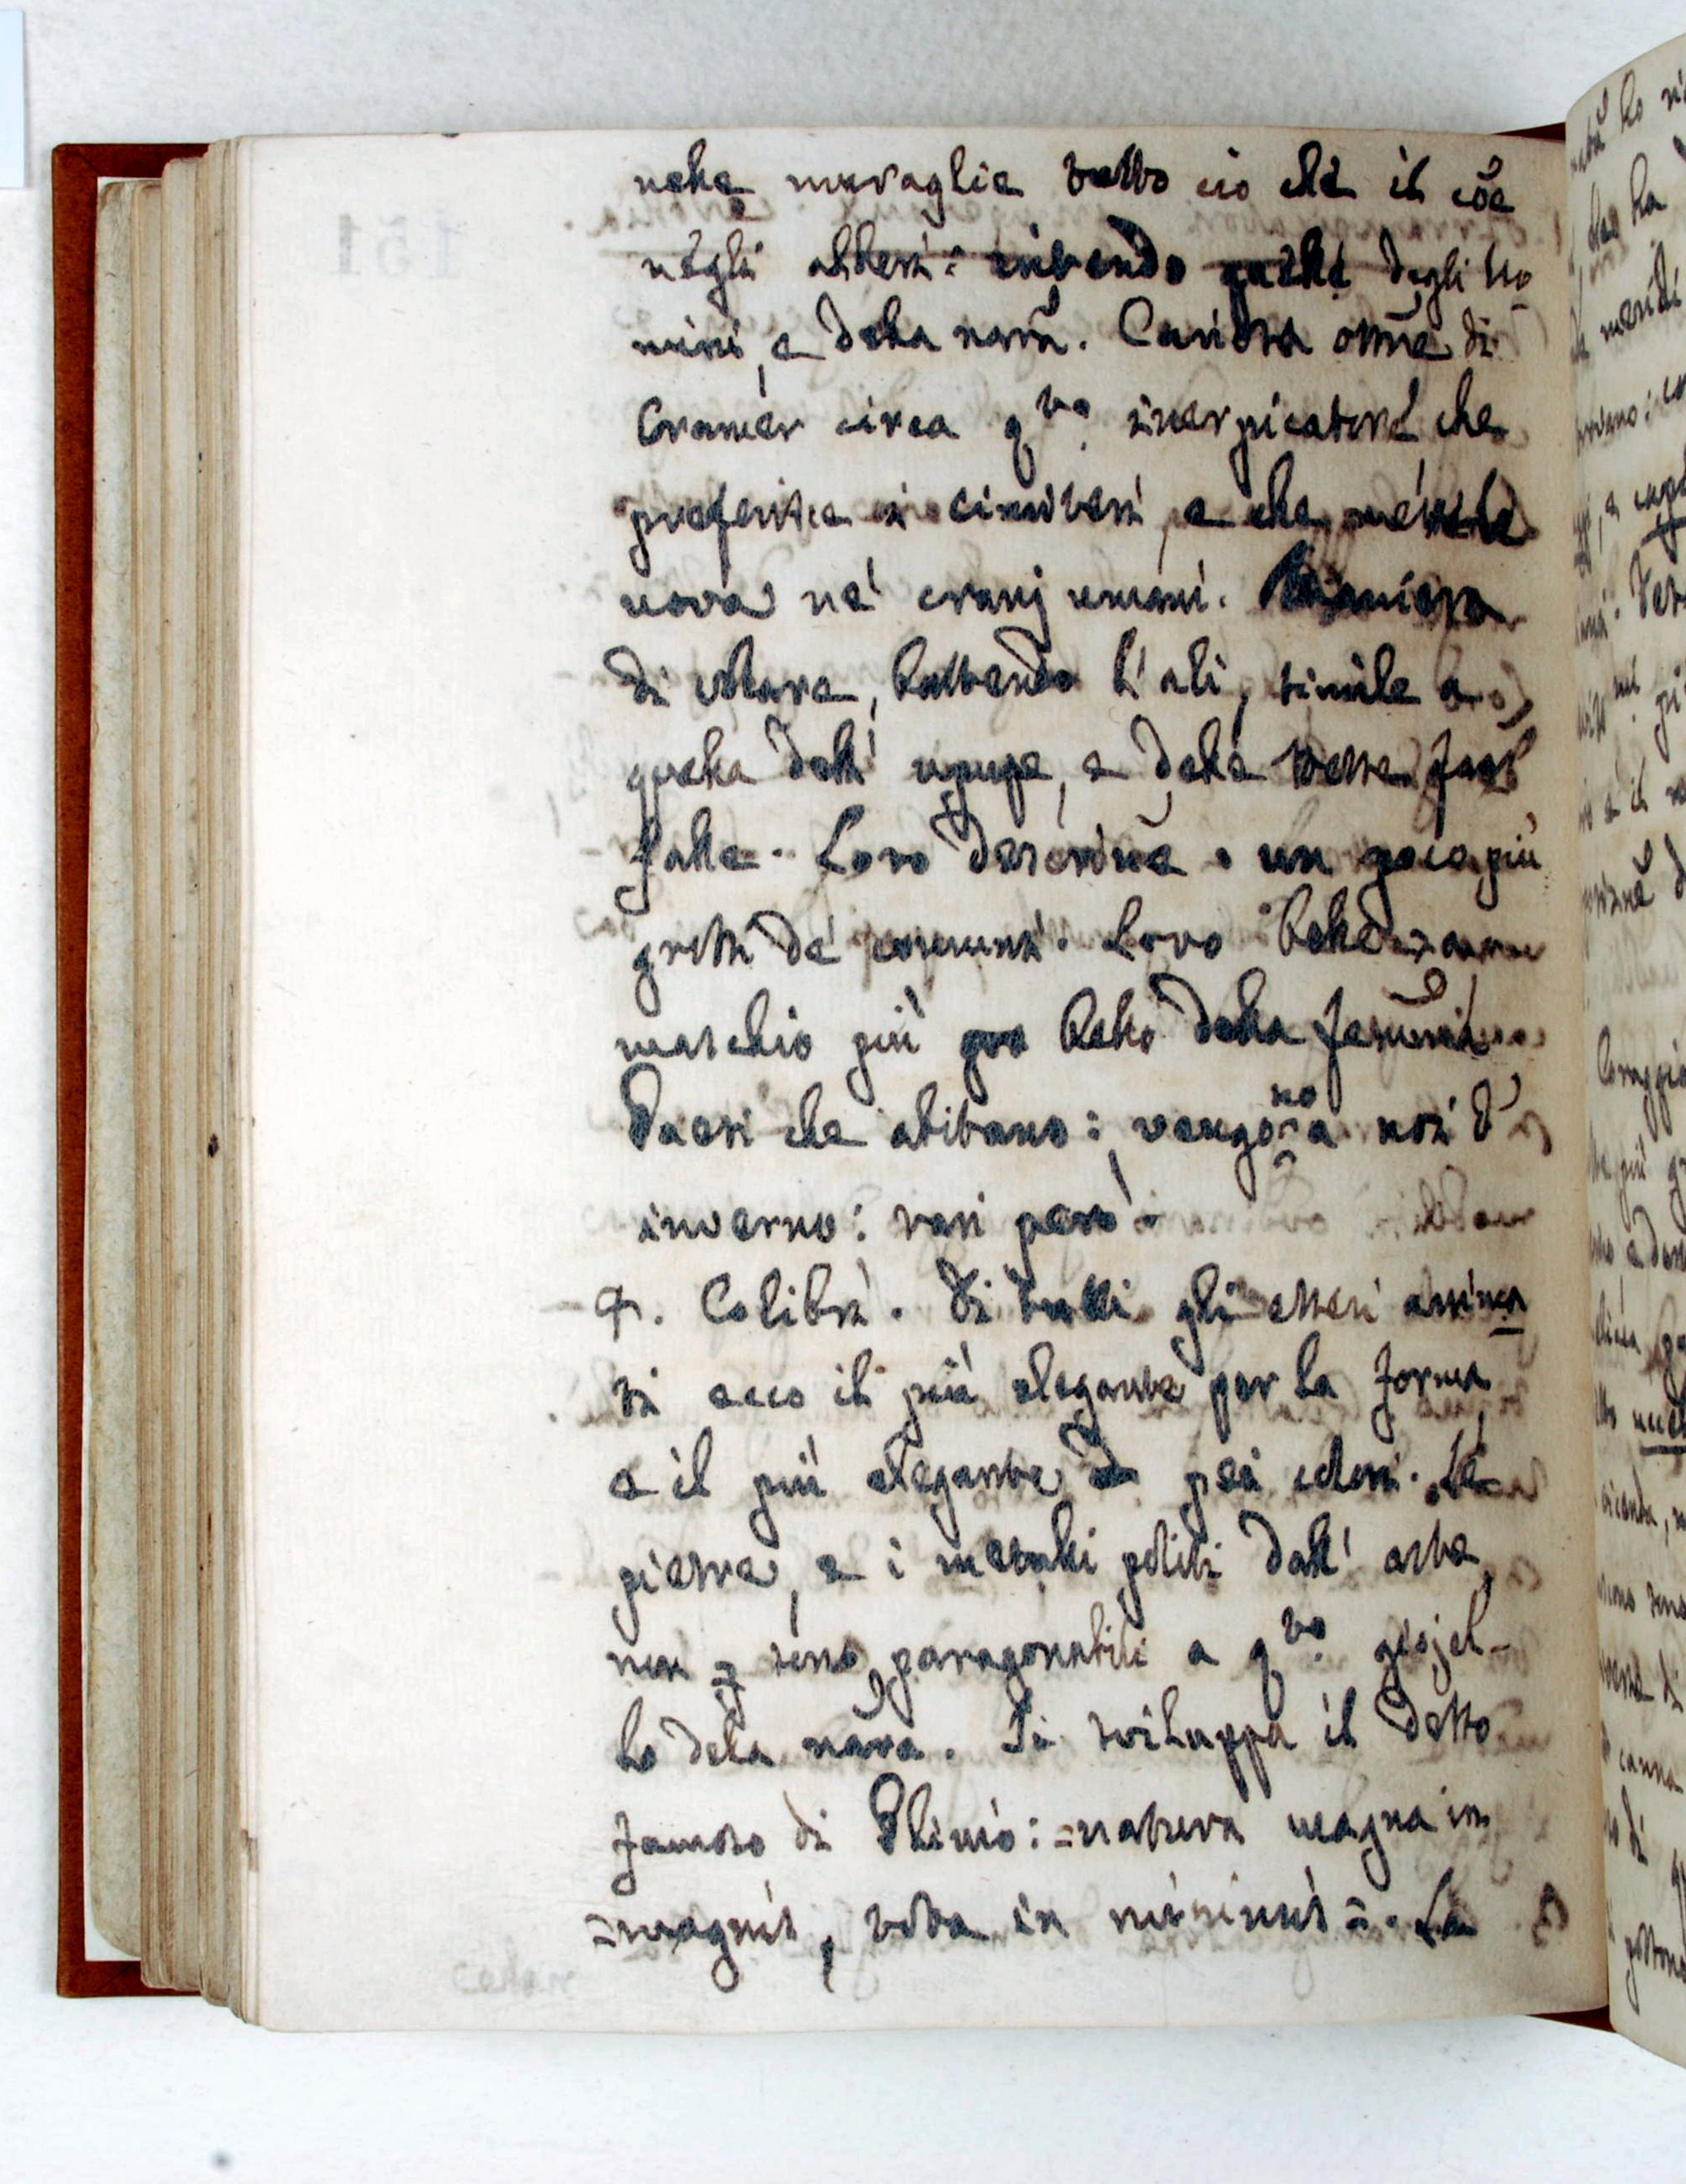 nelle muraglie tutto ciò che il cõe
negli alberi: nidendo anche degli uo
mini, e della natã. Curiosa ossne di
Cramer circa qto inerpicatore che
preferisce i cimiteri, e che mette le
uova ne' cranj umani. Maniera
di volare, battendo l'ali, simile a
quella dell' upupa, e delle stesse far
falle. Loro Descrizne. un poco più
grossi de' comuni. Loro bellezza
maschio più bello della femina
Paesi che abitano: vengono a noi d'
inverno: rari però.
9. Colibrì. Di tutti gli esseri anima
ti ecco il più elegante per la forma
e il più elegante pei colori. Le
pietre, e i metalli politi dall' arte,
non sono paragonabili a qto giojel-
lo della nãra. Si sviluppa il detto
famoso di Plinio: =natura magna in
=magnis, tota in minimis=. La